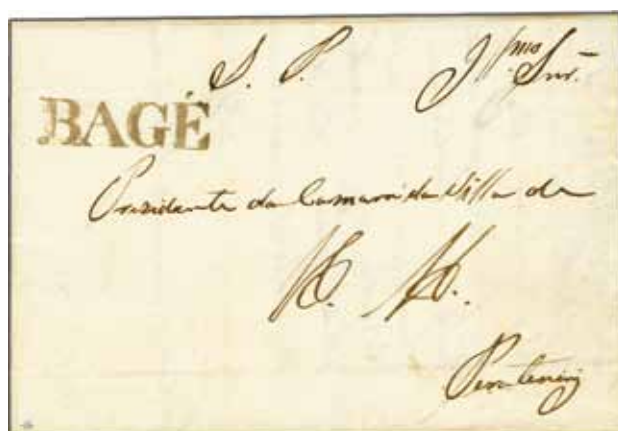 S. P. Illmo Snr.
BAGÉ
Presidente da Camara da Villa de
Pirateniy